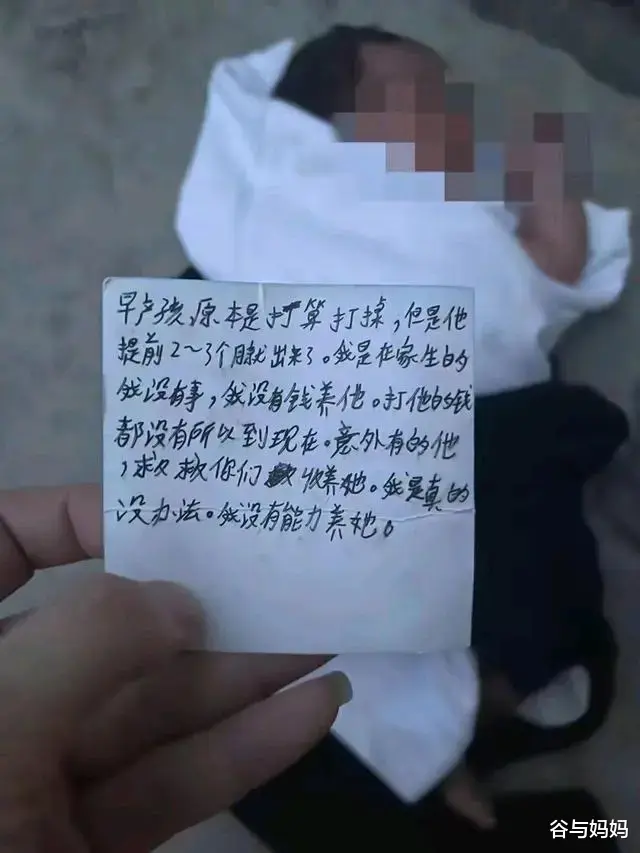 早产孩原本是打算打掉，但是他
提前2～3个月就出来了。我是在家生的
我没有事，我没有钱养他。打他的钱
都没有所以到现在。意外有的他
，求求你们收养她。我是真的
没办法。我没有能力养她。
谷与妈妈